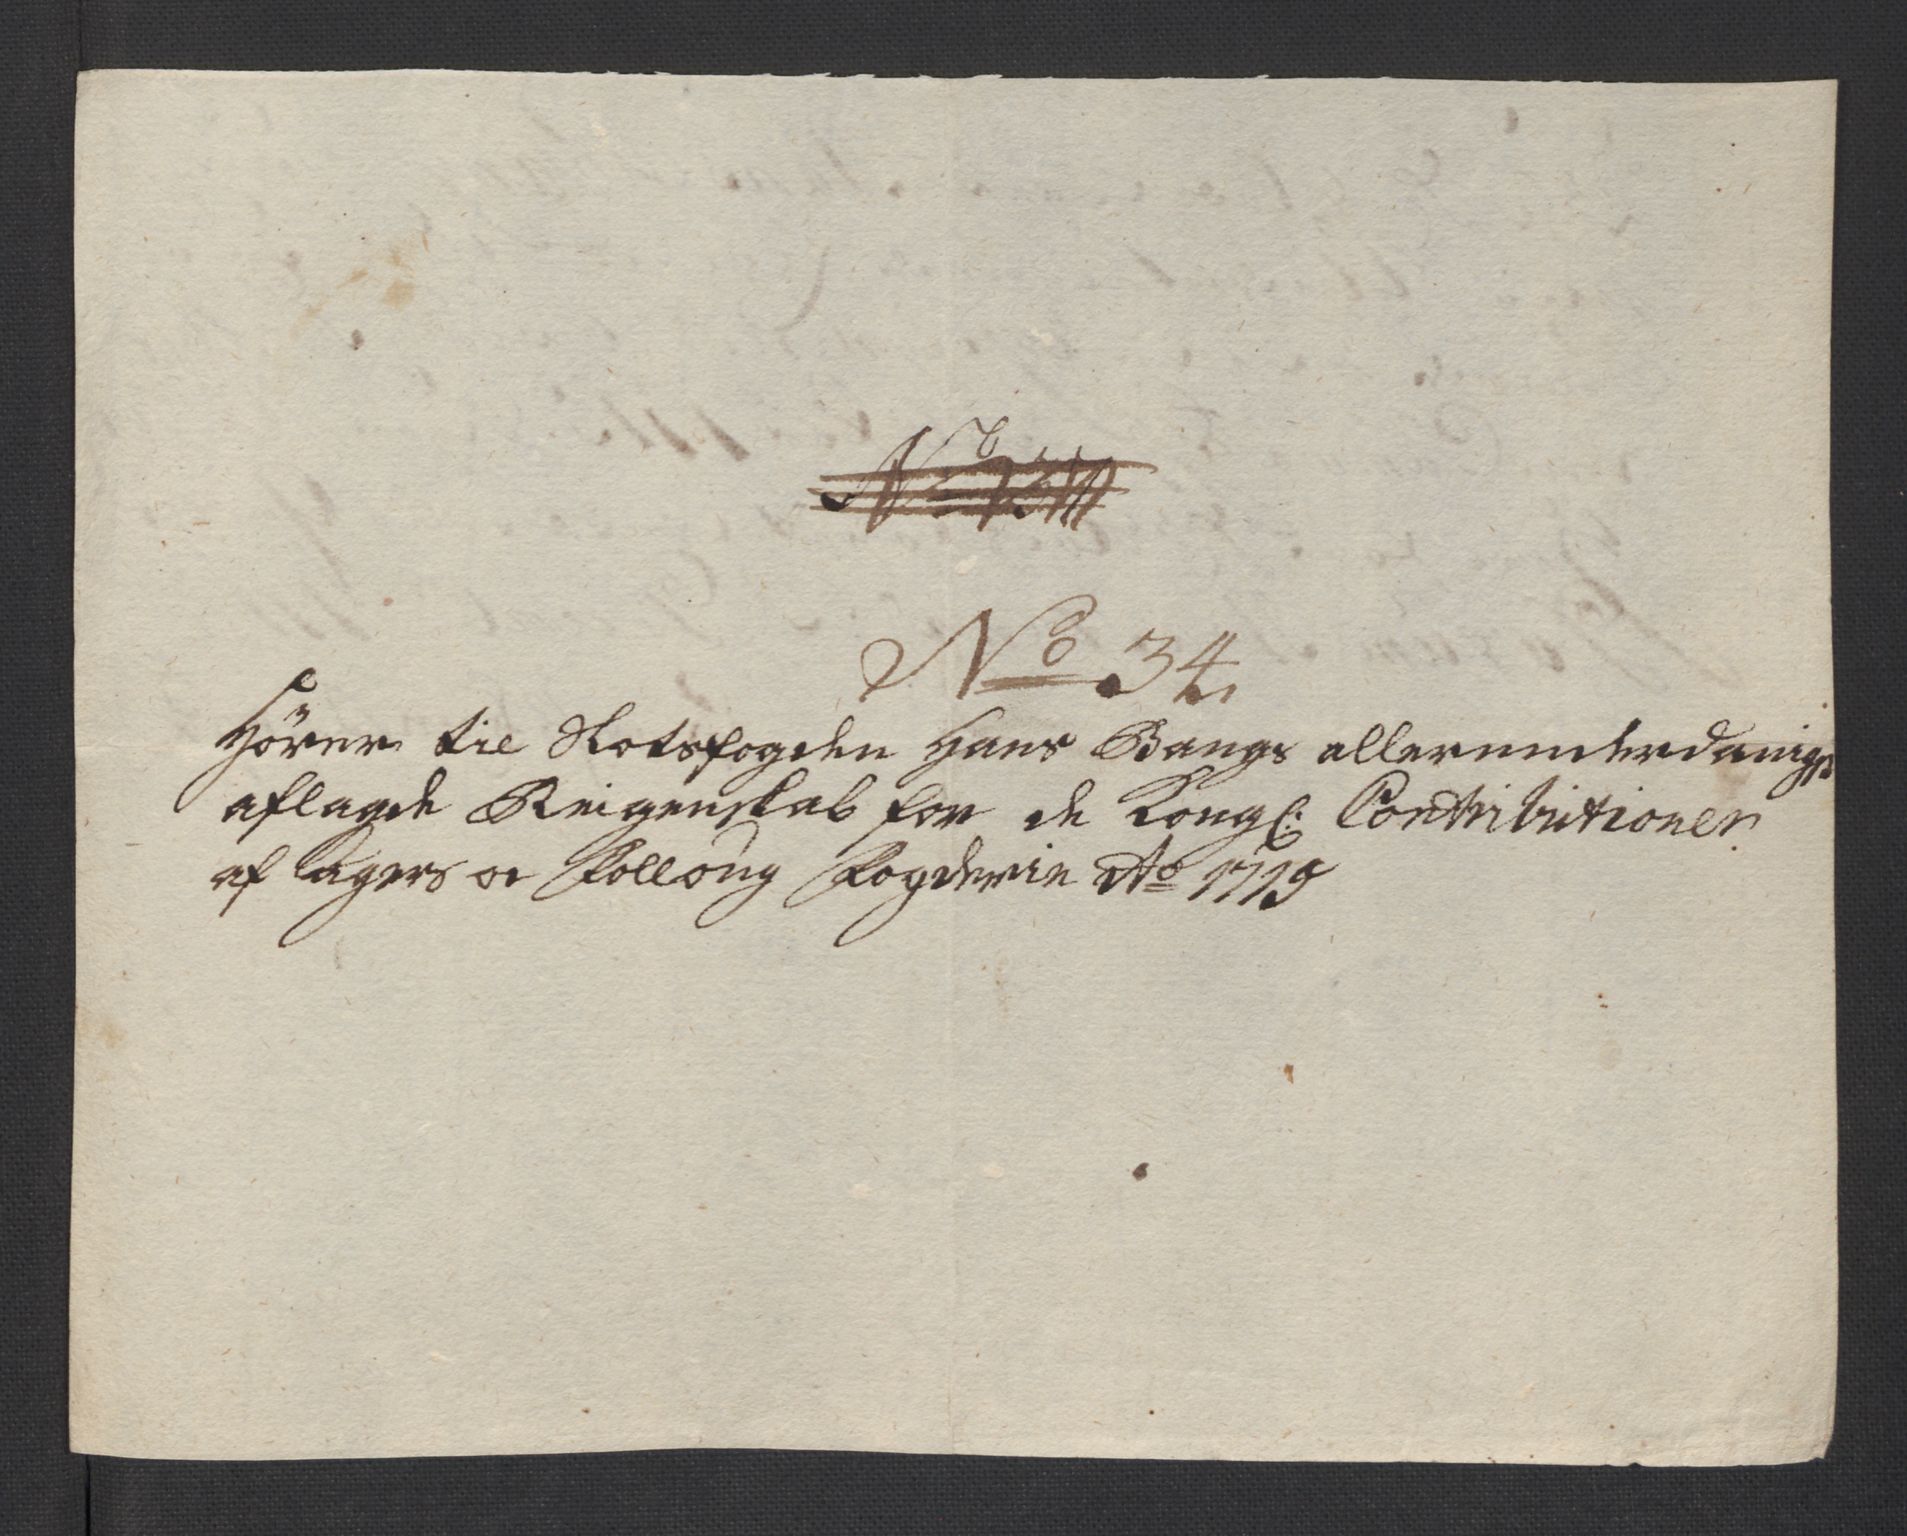 No. 34
Hörer til Slotsfogden Hans Bangs allerunderdanigst
aflagde Reigenskab for de Kongl: Contributioner
af Agers oc Folloug Fogderie Ao 1715